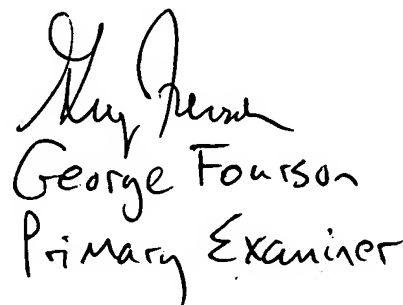 George Fourson
Primary Examiner